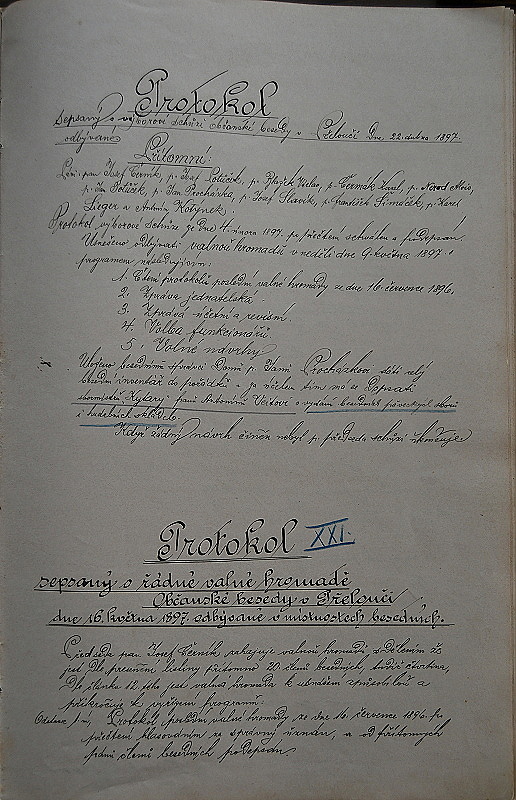 Protokol
sepsaný o výborové schůzi občanské besedy v Přelouči dne 22. dubna 1897
odbývané
Přítomni:
Páni: pan Josef Černík, p. Josef Potůček, p. Hlaváček Václav, p. Čermák Karel, p. Alois,
p. Jan Potůček, p. Jan Procházka, p. Josef Slavík, p. František Šimáček, p. Karel
Sieger a Antonín Kotynek.
Protokol výborové schůze ze dne 4. února 1897 po přečtení schválen a podepsán
Usneseno odbývati valnou hromadu v neděli dne 9. května 1897 s
programem následujícím:
1. Čtení protokolu poslední valné hromady ze dne 16. července 1896.
2. Zpráva jednatelská.
3. Zpráva účetní a revisní.
4. Volba funkcionářů
5. Volné návrhy
Uloženo besednímu správci domu p. Janu Procházkovi dáti celý
besední inventář do pořádku a za účelem tím má se dopsati
p. Antonínu o vydání besedních pěveckých sborů
i hudebních skladeb.
Když žádný návrh činěn nebyl p. předseda schůzi skončuje
Protokol XXI.
sepsaný o řádné valné hromadě
Občanské besedy v Přelouči
dne 16. května 1897 odbývané v místnostech besedních.
Předseda pan Josef Černík, zahajuje valnou hromadu sdělením že
jest dle presenční listiny přítomno 20 členů besedních, tudíž
dle článku 12. jest valná hromada k usnášení způsobilou a
přikročuje k vyřízení programu:
Odstavec 1ní, Protokol poslední valné hromady ze dne 16. července 1896 po
přečtení hlasováním za správný uznán, a od přítomných
členů besedních podepsán